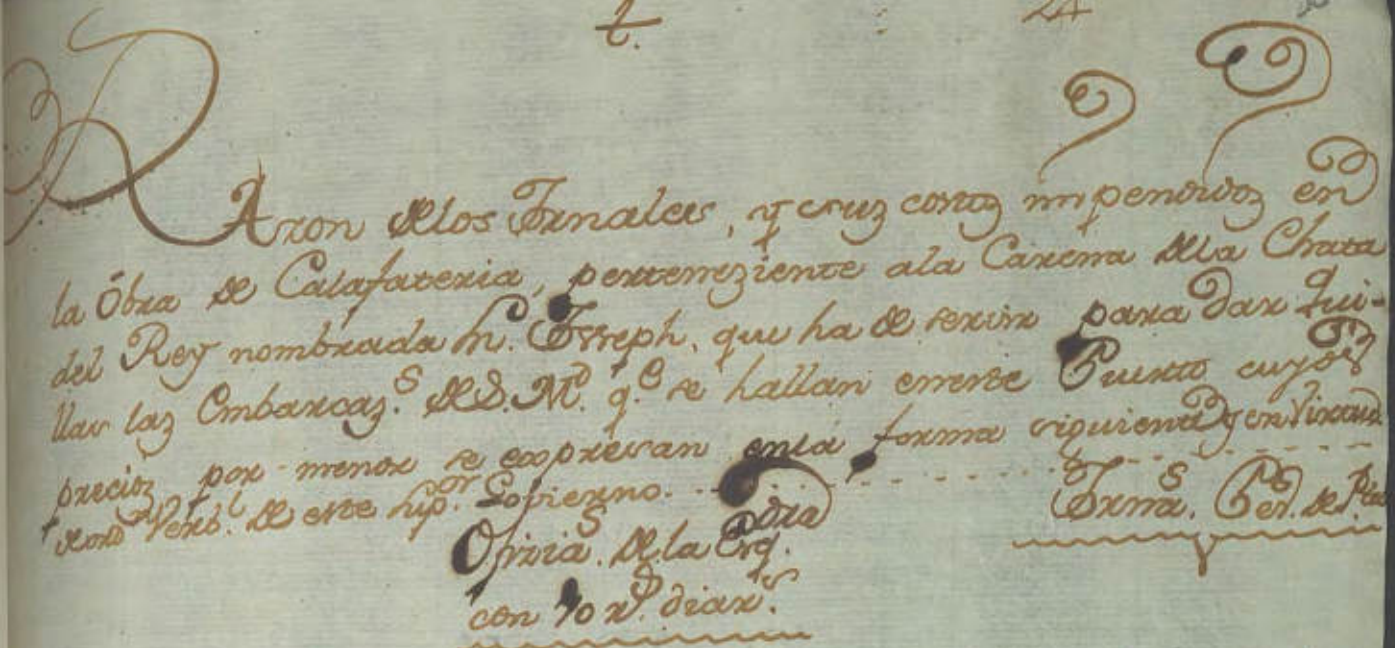 RAxon delos Jornales, y cruz costos impendidos en
la Obra de Calafateria, perteneziente ala Carena dela Chata
del Rey nombrada Sn. Joseph, que ha de servir para dar Qui-
llas laz Embarcazs. de S. M. qe. se hallan eneste Puerto cuyos
precios por menor se expresan enla forma siguiente y en Virtud
de ordn Verbl. de este Supor. Govierno.
Ofizias. dela Esqdra
con 10 rs. diaros.
Jorns. Ps. de Pta